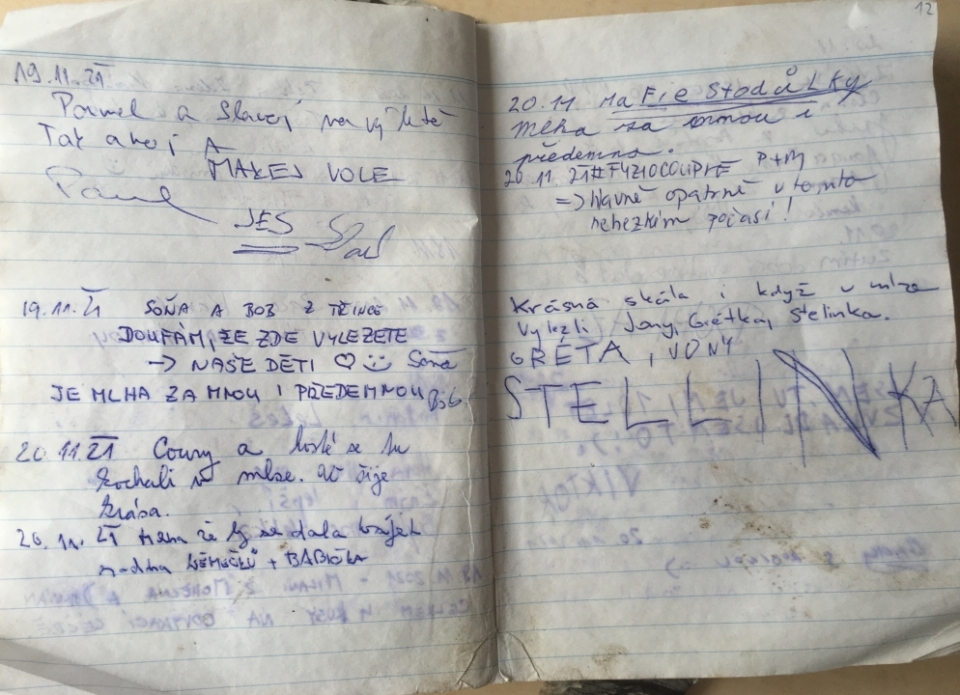 19.11.21
Pavel a Slavoj na výletě
Tak ahoj A
MAKEJ VOLE
Pavel
JES
19.11.21 SOŇA A BOB Z TŘINCE
DOUFÁM, ŽE ZDE VYLEZETE
→ NAŠE DĚTI ♡ ☺ Soňa
JE MLHA ZA MNOU I PŘEDEMNOU Bob
20.11.21 Coury a se tu
kochali v mlze. Ať žije
krása.
20.11.21 se dala
rodina + BABIČKA
12
20.11 MaFie StodůLky
mlha za mnou i
předemnou.
20.11.21 P+M
=> hlavně opatrně v tomto
nehezkim počasí!
Krásná skála i když v mlze
Vylezli Jony, Grétka, Stelinka.
GRÉTA, JONY
STELLINKA